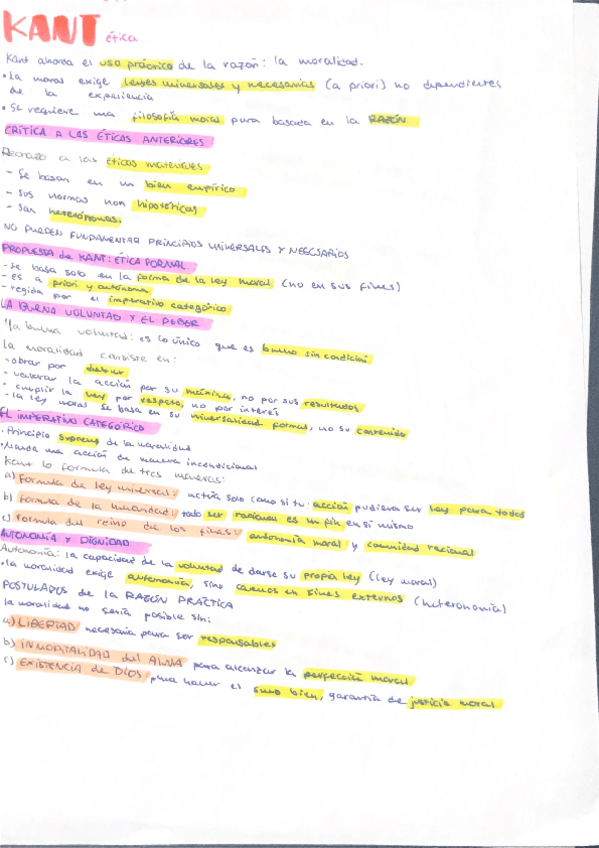 KANT ética
Kant aborda el uso práctico de la razón: la moralidad.
• La moral exige leyes universales y necesarias (a priori) no dependientes
de la experiencia
• Se requiere una filosofía moral pura basada en la RAZÓN
CRÍTICA A LAS ÉTICAS ANTERIORES
Rechazo a las éticas materiales
- Se basan en un bien empírico
- Sus normas non hipotéticas
- San heterónomas.
NO PUEDEN FUNDAMENTAR PRINCIPIOS UNIVERSALES Y NECESARIOS
PROPUESTA de KANT: ÉTICA FORMAL
- Se basa solo en la forma de la ley moral (no en sus fines)
- es a priori y autónoma
- regida por el imperativo categórico
LA BUENA VOLUNTAD Y EL DEBER
"la buena voluntad: es lo único que es bueno sin condición
la moralidad consiste en:
- obrar por deber
- valorar la acción por su máxima, no por sus resultados
- cumplir la ley por respeto, no por interés
- la ley moral se basa en su universalidad formal, no su contenido
EL IMPERATIVO CATEGÓRICO
• Principio supremo de la moralidad
• Manda una acción de manera incondicional
Kant lo formula de tres maneras:
a) Formula de ley universal: actúa solo como si tu acción pudiera ser ley para todos
b) formula de la humanidad: todo ser racional es un fin en si mismo
c) formula del reino de los fines: autonomía moral y comunidad racional
AUTONOMÍA Y DIGNIDAD
Autonomía: la capacidad de la voluntad de darse su propia ley (ley moral)
• la moralidad exige autonomía, sino caemos en fines externos (heteronomía)
POSTULADOS de la RAZÓN PRÁCTICA
la moralidad no sería posible sin:
a) LIBERTAD necesaria para ser responsables
b) INMORTALIDAD del ALMA para alcanzar la perfección moral
c) EXISTENCIA de DIOS para hacer el sumo bien, garantía de justicia moral